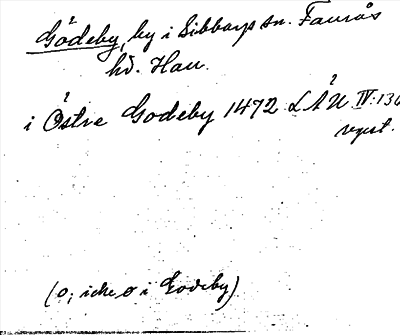 Gödeby, by i Sibbarps sn. Faurås
hd. Hall.
i Östre Godeby 1472 LÅU IV:136
repert.
(o; icke ø i Godeby)